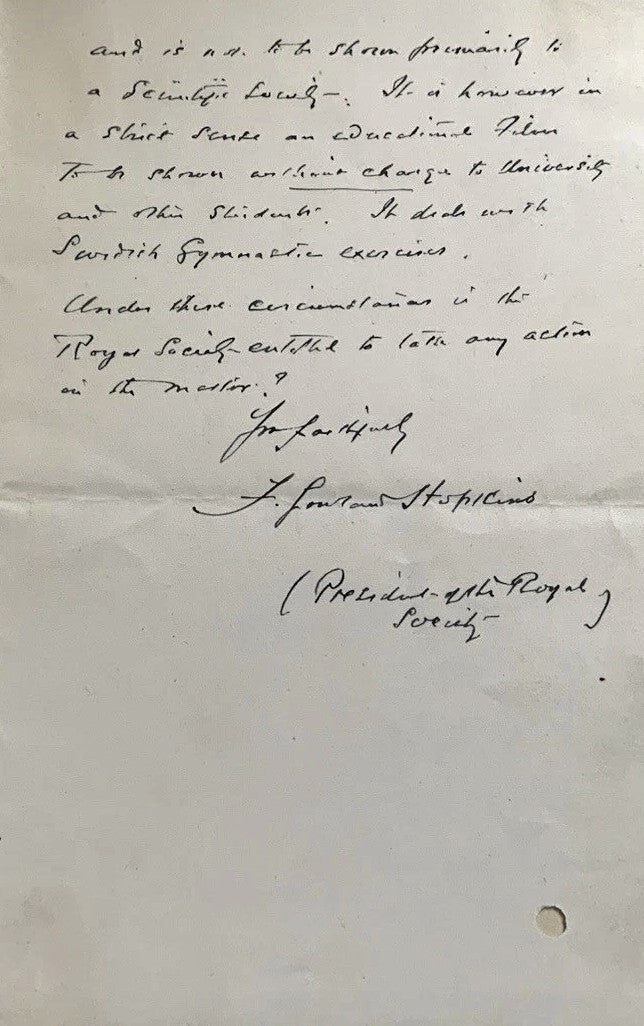 and is not to be shown primarily to
a Scientific Society. It is however in
a strict sense an educational Film
To be shown without charge to University
and other students. It deals with
Swedish Gymnastic exercises.
Under these circumstances is the
Royal Society entitled to take any action
in the matter?
Yrs faithfully
F. Gowland Hopkins
(President of the Royal
Society)